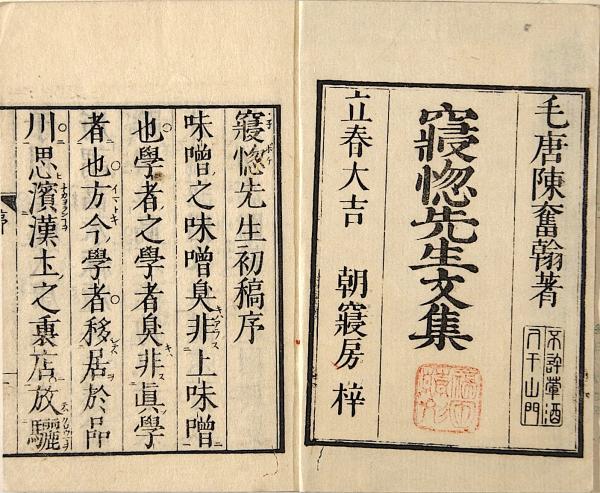 毛唐陳奮翰著
不許葷酒
入于山門
寢惚先生文集
立春大吉　朝寢房梓
寢惚先生初稿序
味噌之味噌臭非上味噌
也學者之學者臭非眞學
者也方今學者移居於品
川思濱漢土之裏店放驪
序